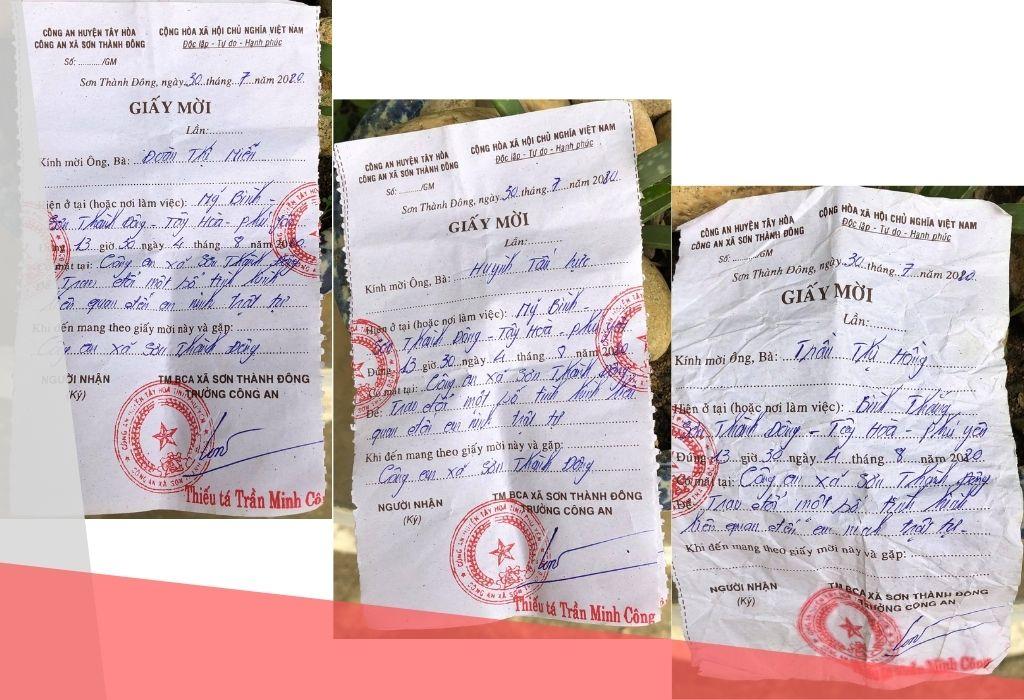 CÔNG AN HUYỆN TÂY HÒA
CÔNG AN XÃ SƠN THÀNH ĐÔNG
Số: ........../GM
CỘNG HÒA XÃ HỘI CHỦ NGHĨA VIỆT NAM
Độc lập - Tự do - Hạnh phúc
Sơn Thành Đông, ngày 30 tháng 7 năm 2020
GIẤY MỜI
Lần:...........
Kính mời Ông, Bà: Đoàn Thị Miền
iện ở tại (hoặc nơi làm việc): Mỹ Bình -
Sơn Thành Đông - Tây Hòa - Phú Yên
13 giờ 30 ngày 4 tháng 8 năm 2020
mặt tại: Công an xã Sơn Thành Đông
Trao đổi một số tình hình
liên quan đến an ninh trật tự
Khi đến mang theo giấy mời này và gặp:
Công an xã Sơn Thành Đông
NGƯỜI NHẬN
(Ký)
TM.BCA XÃ SƠN THÀNH ĐÔNG
TRƯỞNG CÔNG AN
Thiếu tá Trần Minh Côn
CÔNG AN HUYỆN TÂY HÒA
CÔNG AN XÃ SƠN THÀNH ĐÔNG
Số: ........../GM
CỘNG HÒA XÃ HỘI CHỦ NGHĨA VIỆT NAM
Độc lập - Tự do - Hạnh phúc
Sơn Thành Đông, ngày 30 tháng 7 năm 2020
GIẤY MỜI
Lần:...........
Kính mời Ông, Bà: Huỳnh Tấn Lực
Hiện ở tại (hoặc nơi làm việc): Mỹ Bình -
Sơn Thành Đông - Tây Hòa - Phú Yên
Đúng 13 giờ 30 ngày 4 tháng 8 năm 2020
Có mặt tại: Công an xã Sơn Thành Đông
Để: Trao đổi một số tình hình liên
quan đến an ninh trật tự
Khi đến mang theo giấy mời này và gặp:
Công an xã Sơn Thành Đông
NGƯỜI NHẬN
(Ký)
TM.BCA XÃ SƠN THÀNH ĐÔNG
TRƯỞNG CÔNG AN
Thiếu tá Trần Minh Công
CÔNG AN HUYỆN TÂY HÒA
CÔNG AN XÃ SƠN THÀNH ĐÔNG
Số: ........../GM
CỘNG HÒA XÃ HỘI CHỦ NGHĨA VIỆT NAM
Độc lập - Tự do - Hạnh phúc
Sơn Thành Đông, ngày 30 tháng 7 năm 2020
GIẤY MỜI
Lần:...........
Kính mời Ông, Bà: Trần Thị Hồng
Hiện ở tại (hoặc nơi làm việc): Bình Thắng
Sơn Thành Đông - Tây Hòa - Phú Yên
Đúng 13 giờ 30 ngày 4 tháng 8 năm 2020
Có mặt tại: Công an xã Sơn Thành Đông
Để: Trao đổi một số tình hình
liên quan đến an ninh trật tự -
Khi đến mang theo giấy mời này và gặp:
NGƯỜI NHẬN
(Ký)
TM.BCA XÃ SƠN THÀNH ĐÔNG
TRƯỞNG CÔNG AN
Minh Công